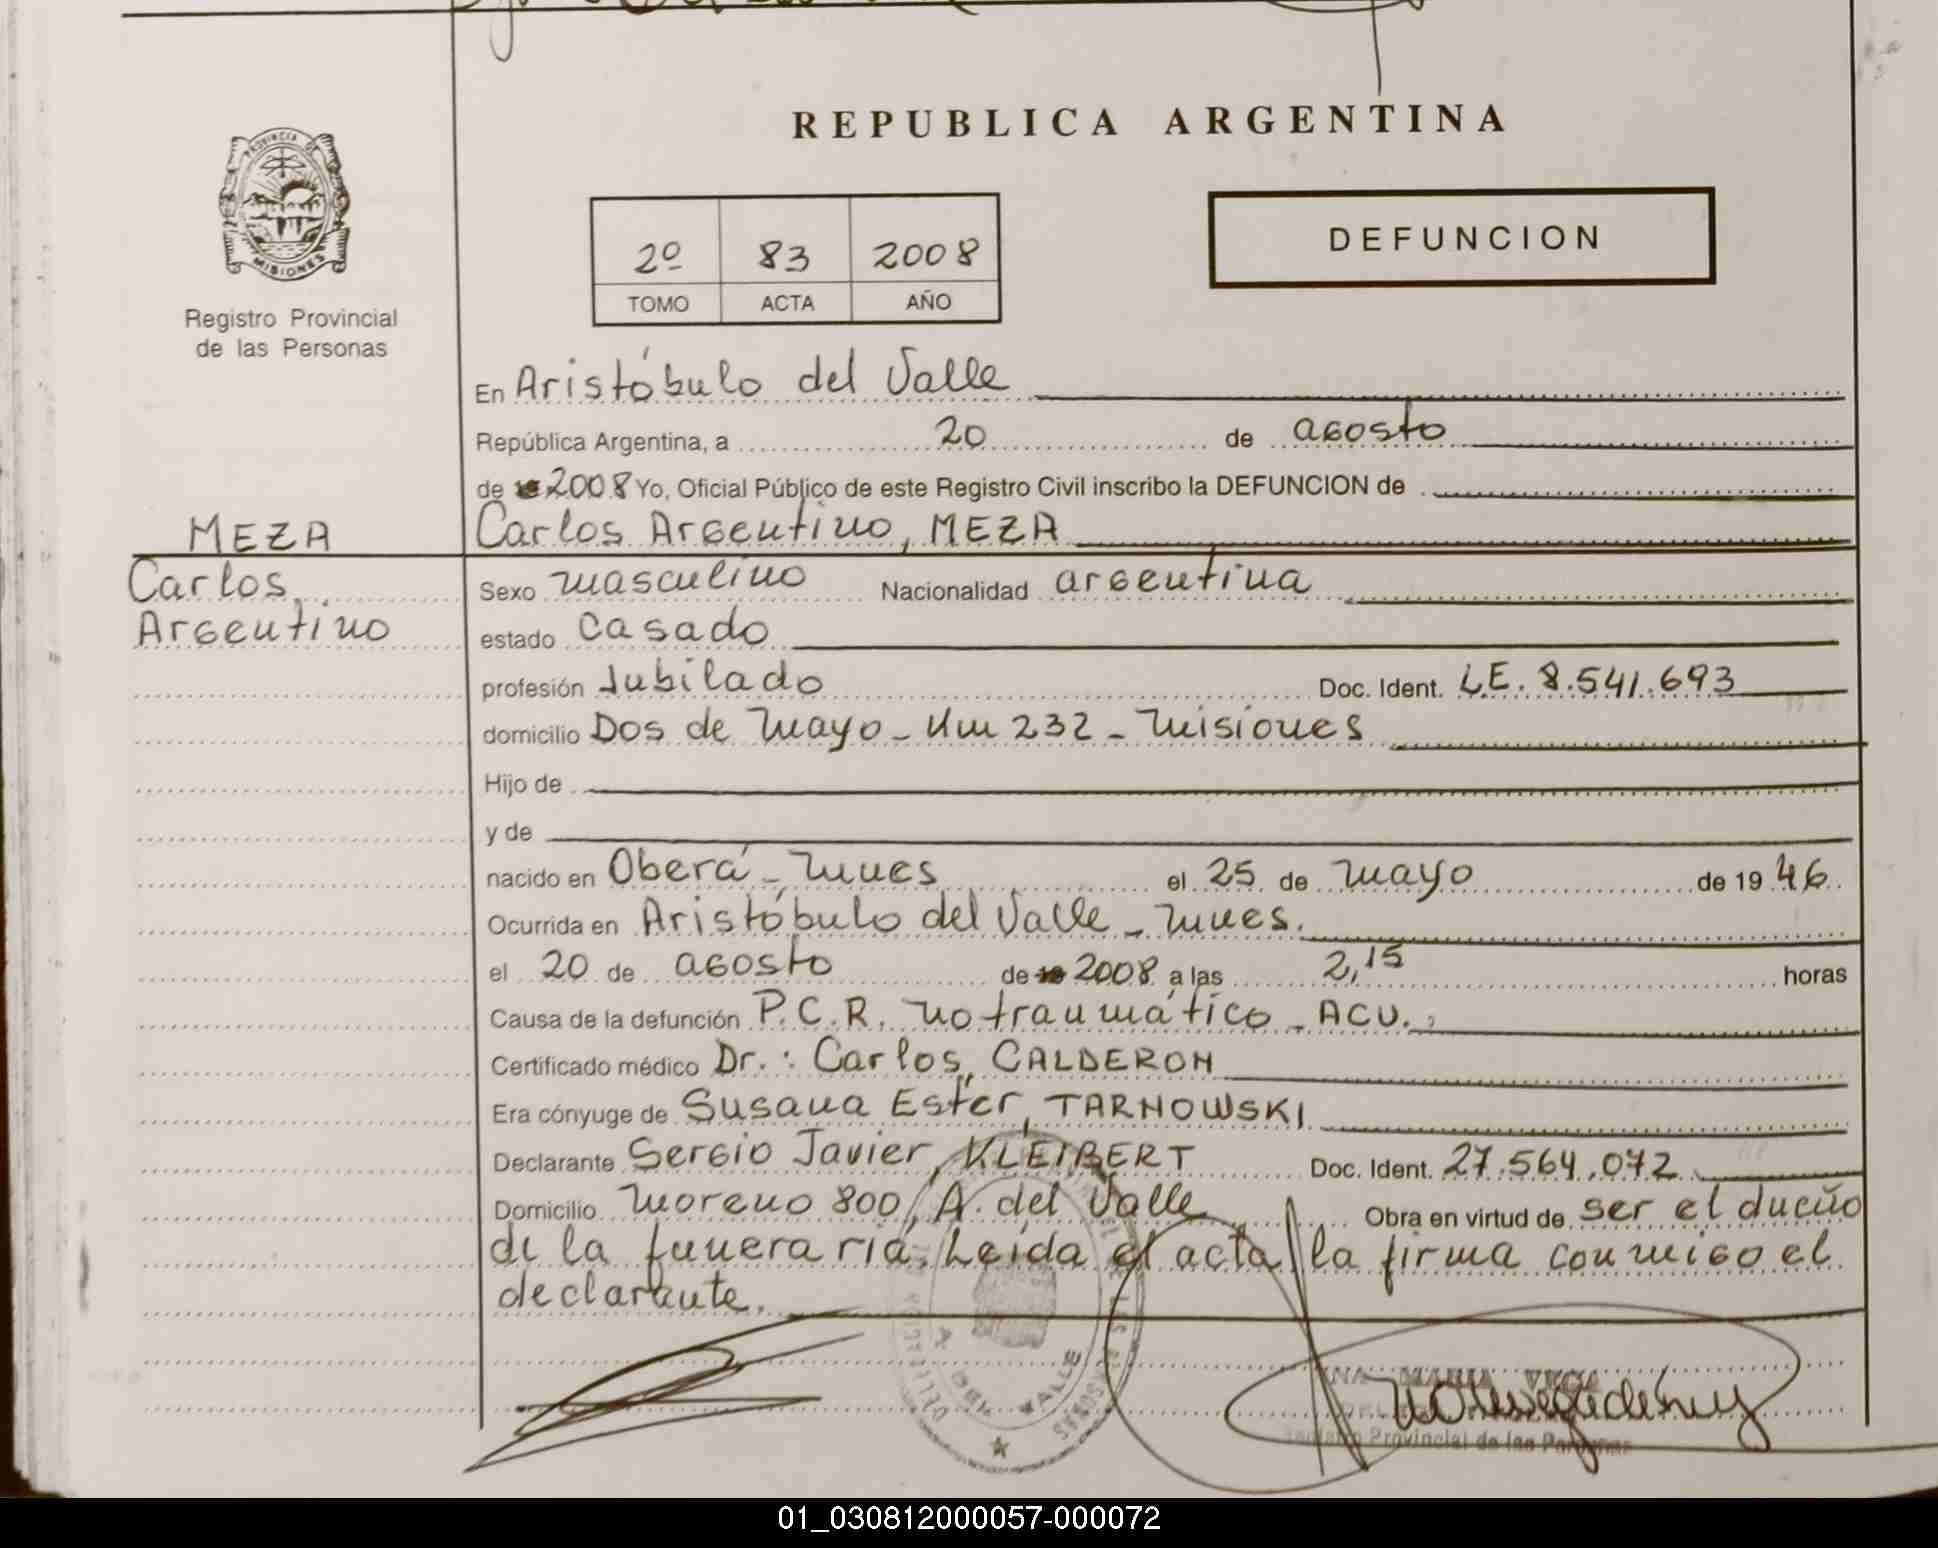 REPUBLICA ARGENTINA
PROVINCIA DE
MISIONES
Registro Provincial
de las Personas
2º 83 2008
TOMO ACTA AÑO
DEFUNCION
En Aristóbulo del Valle
República Argentina, a 20 de agosto
de 2008 Yo, Oficial Público de este Registro Civil inscribo la DEFUNCION de
MEZA
Carlos Argentino, MEZA
Carlos,
Argentino
Sexo masculino Nacionalidad argentina
estado casado
profesión Jubilado Doc. Ident. L.E. 8.541.693
domicilio Dos de Mayo - Km 232 - Misiones
Hijo de
y de
nacido en Oberá - Mnes el 25 de mayo de 1946
Ocurrida en Aristóbulo del Valle - Mnes.
el 20 de agosto de 2008 a las 2,15 horas
Causa de la defunción P.C.R. no traumático - ACV.
Certificado médico Dr.: Carlos, CALDERON
Era cónyuge de Susana Ester, TARNOWSKI
Declarante Sergio Javier, KLEIBERT Doc. Ident. 27.564.072
Domicilio Moreno 800, A. del Valle Obra en virtud de ser el dueño
de la funeraria. Leída el acta, la firma conmigo el
declarante.
VALLE
MARIA VEGA
Registro Provincial de las Personas
01_030812000057-000072